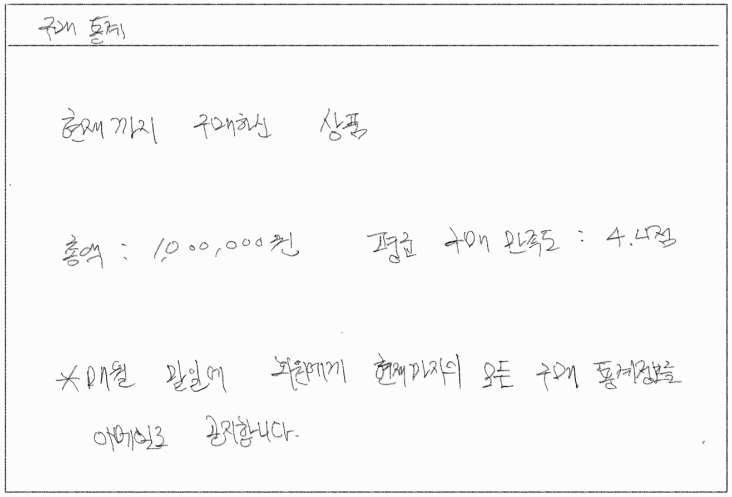 구매 통계
현재까지 구매하신 상품
총액 : 1,000,000원 평균 구매 만족도 : 4.4점
*매월 말일에 회원에게 현재까지의 모든 구매 통계정보를
이메일로 공지합니다.